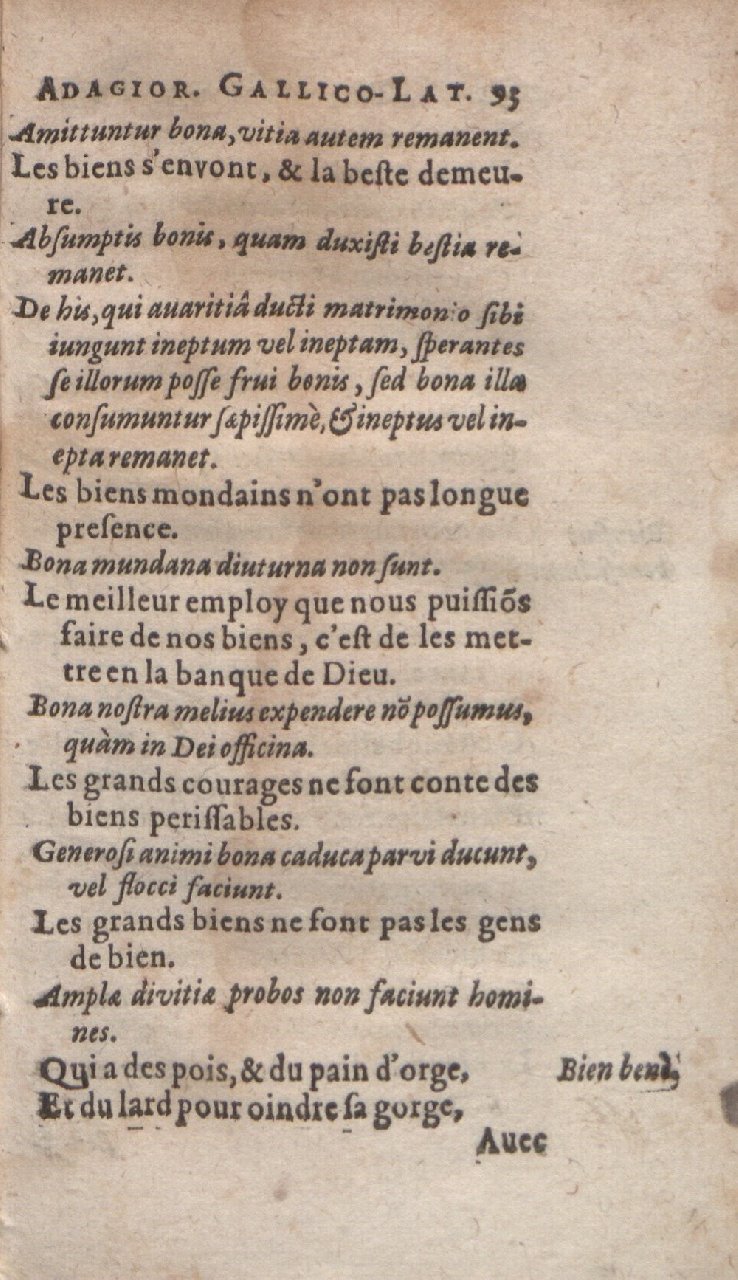 ADAGIOR. GALLICO-LAT. 93
Amittuntur bona, vitia autem remanent.
Les biens s'envont, & la beſte demeu-
re.
Abſumptis bonis, quam duxiſti beſtia re-
manet.
De his, qui auaritiâ ducti matrimonio ſibi
iungunt ineptum vel ineptam, ſperantes
ſe illorum poſſe frui bonis, ſed bona illa
conſumuntur ſæpiſſimè, & ineptus vel in-
epta remanet.
Les biens mondains n'ont pas longue
preſence.
Bona mundana diuturna non ſunt.
Le meilleur employ que nous puiſſiõs
faire de nos biens, c'eſt de les met-
tre en la banque de Dieu.
Bona noſtra melius expendere nõ poſſumus,
quàm in Dei officina.
Les grands courages ne font conte des
biens periſſables.
Generoſi animi bona caduca parvi ducunt,
vel flocci faciunt.
Les grands biens ne font pas les gens
de bien.
Amplæ divitiæ probos non faciunt homi-
nes.
Qui a des pois, & du pain d'orge,
Bien
Et du lard pour oindre ſa gorge,
Auec